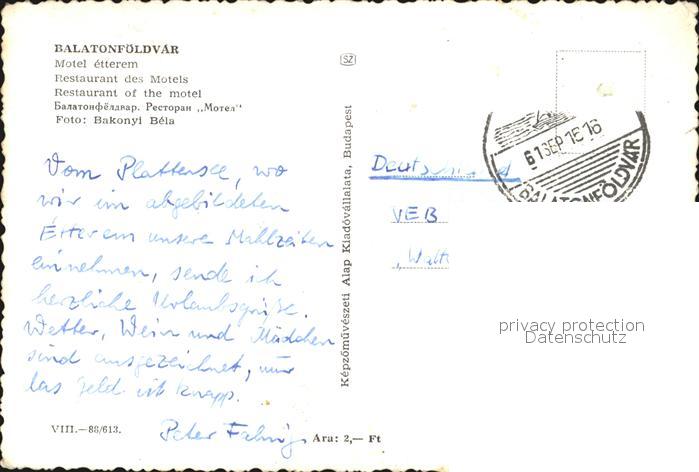 BALATONFÖLDVÁR
Motel étterem
Restaurant des Motels
Restaurant of the motel
Балатонфёлдвар. Ресторан „Мотел“
Foto: Bakonyi Béla
Vom Plattensee, wo
wir im abgebildeten
Étterem unsere Mahlzeiten
einnehmen, sende ich
herzliche Urlaubsgrüße.
Wetter, Wein und Mädchen
sind ausgezeichnet, nur
das Geld ist knapp.
Peter
VIII.—88/613.
Ara: 2,— Ft
Képzőművészeti Alap Kiadóvállalata, Budapest
SZ
61 SEP 16 16
BALATONFÖLDVÁR
VEB
privacy protection
Datenschutz